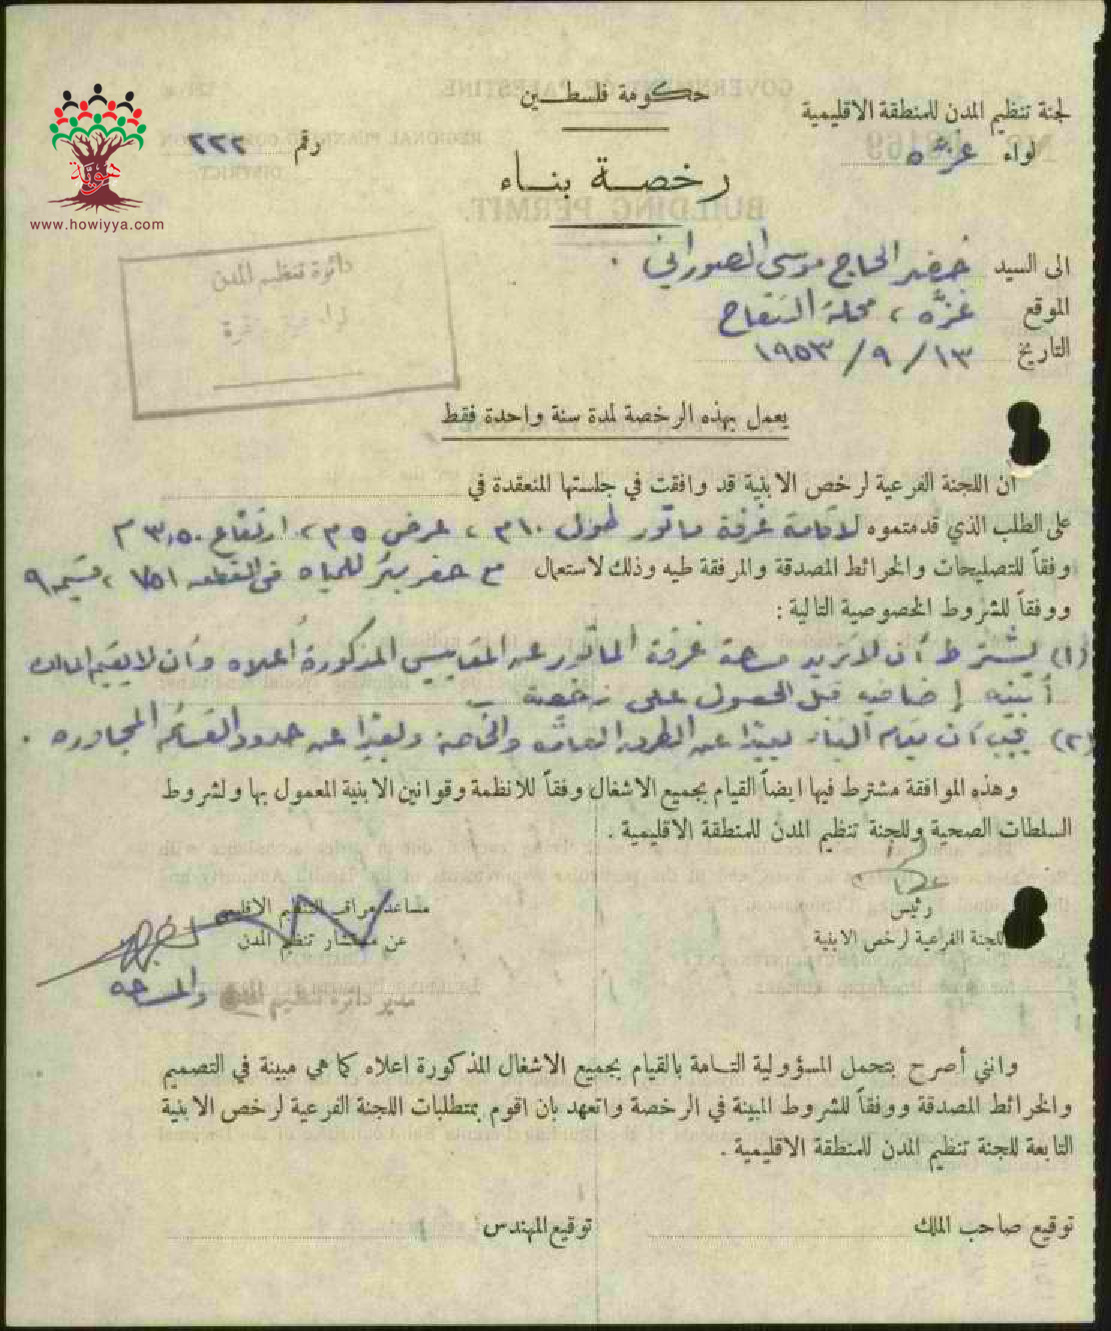 حكومة فلسطين
لجنة تنظيم المدن للمنطقة الاقليمية
لواء غزه
رقم ٢٢٢
هوية
www.howiyya.com
رخصة بناء
الى السيد خضر الحاج موسى الصوراني .
الموقع غزه ، محلة التفاح
التاريخ ١٣ / ٩ / ١٩٥٣
دائرة تنظيم المدن
يعمل بهذه الرخصة لمدة سنة واحدة فقط
ان اللجنة الفرعية لرخص الابنية قد وافقت في جلستها المنعقدة في
على الطلب الذي قدمتموه لاقامة غرفة ماتور طول ١٠م ، عرض ٥م ، ارتفاع ٣،٥٠ م
وفقاً للتصليحات والخرائط المصدقة والمرفقة طيه وذلك لاستعمال مع حفر بئر للمياه في القطعه ٧٥١ ، قسيمه ٩
ووفقاً للشروط الخصوصية التالية :
(١) يشترط أن لا تزيد مساحة غرفة الماتور عن المقاييس المذكورة أعلاه وأن لا يقيم المالك
أبنيه إضافيه قبل الحصول على رخصة
(٢) يجب أن يقام البناء بعيدا عن الطرق العامه والخاصة وبعيدا عن حدود القسائم المجاوره .
وهذه الموافقة مشترط فيها ايضاً القيام بجميع الاشغال وفقاً للانظمة وقوانين الابنية المعمول بها ولشروط
السلطات الصحية وللجنة تنظيم المدن للمنطقة الاقليمية .
رئيس
اللجنة الفرعية لرخص الابنية
مساعد مراقب التنظيم الاقليمي
عن مستشار تنظيم المدن
مدير دائرة تنظيم المدن والمساحه
وانني أصرح بتحمل المسؤولية التامة بالقيام بجميع الاشغال المذكورة اعلاه كما هي مبينة في التصميم
والخرائط المصدقة ووفقاً للشروط المبينة في الرخصة واتعهد بان اقوم بمتطلبات اللجنة الفرعية لرخص الابنية
التابعة للجنة تنظيم المدن للمنطقة الاقليمية .
توقيع صاحب الملك
توقيع المهندس